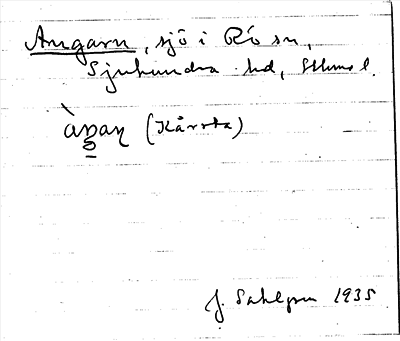 Angarn, sjö i Rö sn,
Sjuhundra hd, Sthms l.
àŋaɳ (Kårsta)
J. Sahlgren 1935